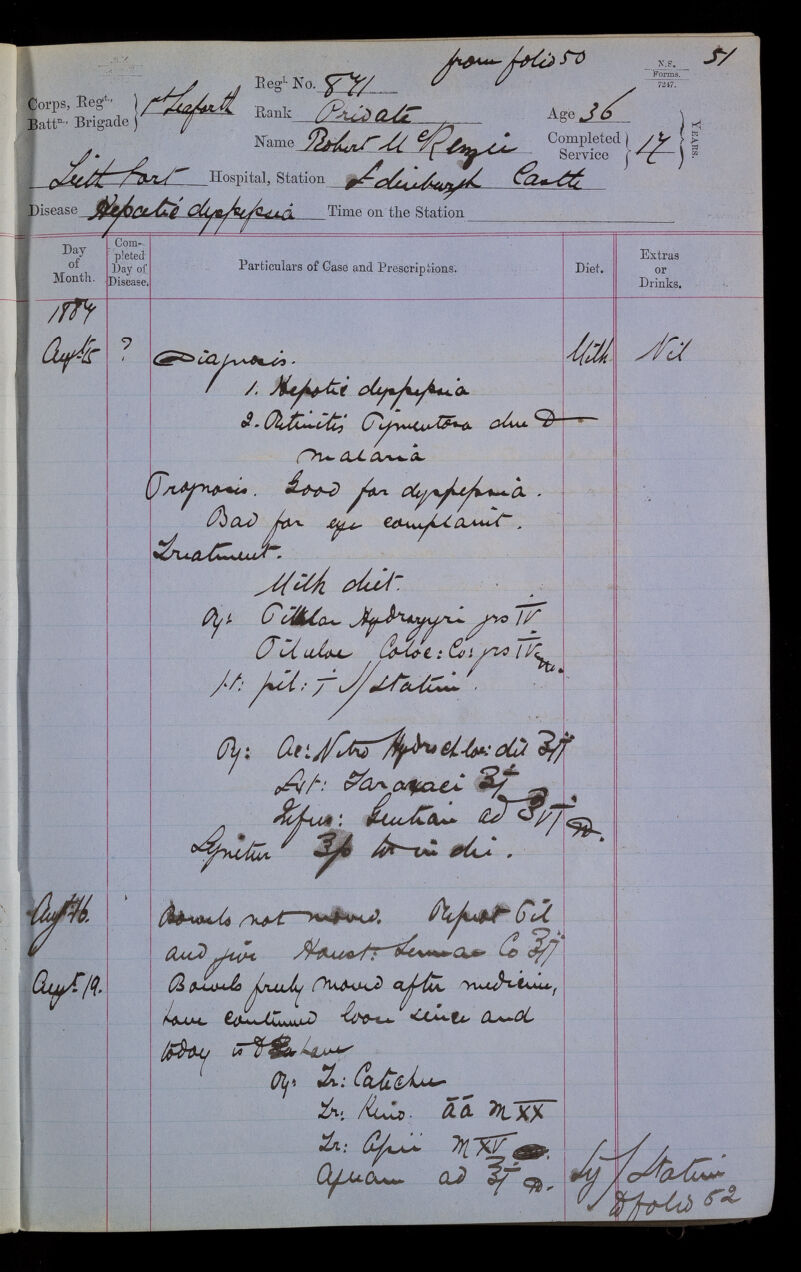 from folio 50
51
N.S.
Forms.
7247.
Corps, Regt.,
Battn., Brigade
1st Seaforth
Regl. No. 871
Rank Private
Age 36
Name Robert McKenzie
Completed
Service
17
YEARS.
Leith Fort Hospital, Station Edinburgh Castle
Disease Hepatic dyspepsia Time on the Station
Day
of
Month.
Com-
pleted
Day of
Disease.
Particulars of Case and Prescriptions.
Diet.
Extras
or
Drinks.
1884
Augt. 15 ? Diagnosis. Milk Nil
1. Hepatic dyspepsia
2. Retinitis Pigmentosa due to
malaria
Prognosis. Good for dyspepsia.
Bad for eye complaint.
Treatment.
Milk diet.
Rx: Pilulae Hydrargyri grs IV
Pilulae Coloc: Co: grs IV m.
ft: pil: i s/ statim.
Rx: Ac: Nitro Hydrochlor: dil ʒii
Ext: Taraxaci ʒi
Infus: Gentian ad ℥vi
Signetur ℥ss ter in die.
Augt. 16. Bowels not moved. Repeat Pil
and give Haust: Sennae Co ℥ii
Augt. 19. Bowels freely moved after medicine,
have continued loose since and
today is to have
Rx: Tr: Catechu
Tr: Kino. āā m XX
Tr: Opii m XV
Aquam ad ℥i
Sg/ Statim
to folio 52